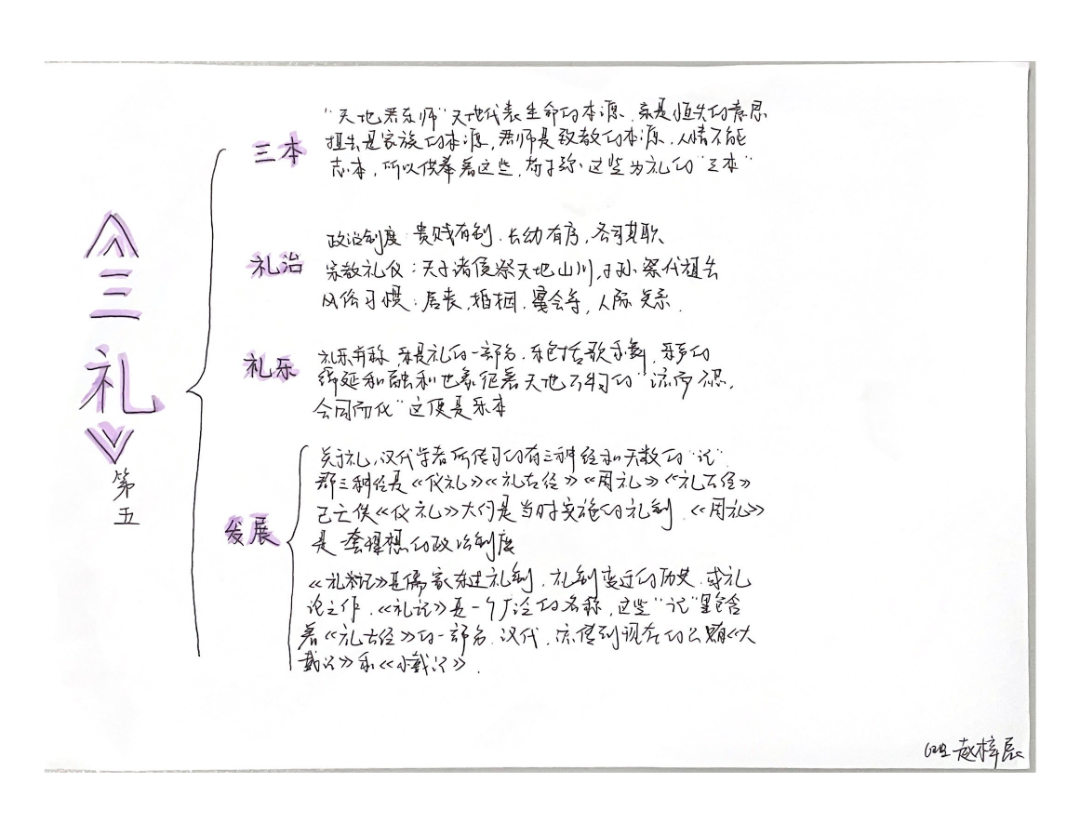 《三礼》第五
三本
"天地君亲师"天地代表生命的本源,亲是祖先的意思
祖先是家族的本源,君师是政教的本源,人情不能
忘本,所以供奉着这些,荀子称这些为礼的"三本"
礼治
政治制度:贵贱有别,长幼有序,各司其职
宗教礼仪:天子诸侯祭天地山川,子孙祭代祖先
风俗习惯:居丧,婚姻,宴会等,人际关系.
礼乐
礼乐并称,乐是礼的一部分,乐包括歌和舞,乐声的
绵延和融和也象征着天地万物的"流而不息,
合同而化"这便是乐本
发展
关于礼,汉代学者所传习的有三种经和无数的"记"
那三种经是《仪礼》《礼古经》《周礼》《礼古经》
已亡佚《仪礼》大约是当时实施的礼制,《周礼》
是一套理想的政治制度
《礼记》是儒家杂述礼制,礼制变迁的历史,或礼
论之作,《礼记》是一个广泛的名称,这些"记"里包含
着《礼古经》的一部分,汉代,流传到现在的只有《大
戴记》和《小戴记》.
赵梓辰